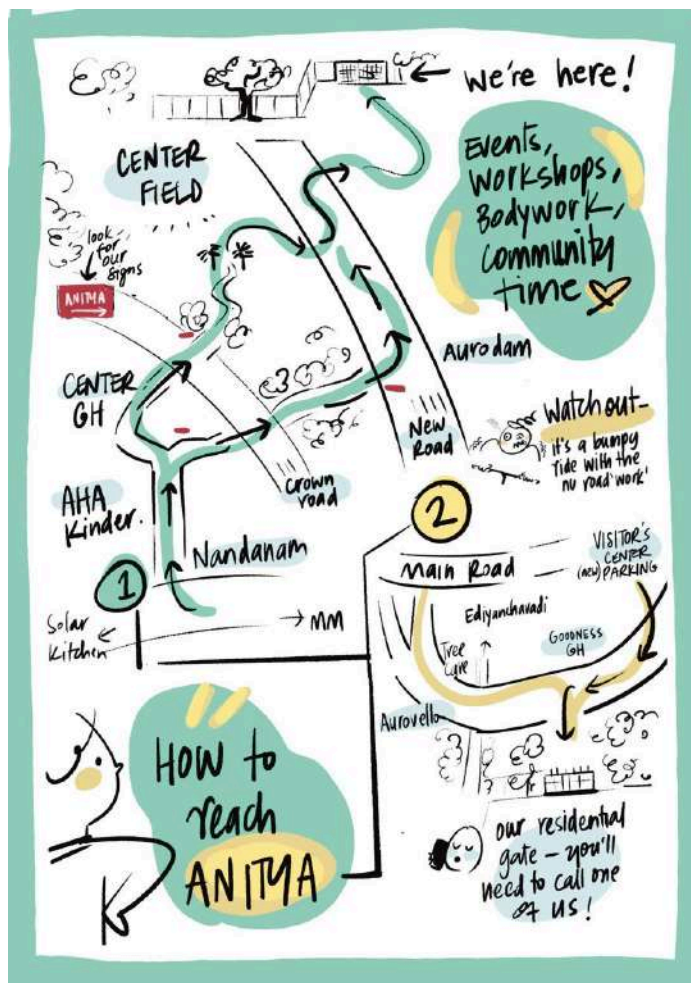 we're here!
CENTER
FIELD
Events,
Workshops,
Bodywork,
Community
time
look
for
our
signs
ANITYA
CENTER
GH
Aurodam
New
Road
Watch out-
it's a bumpy
ride with the
nu road 'work'
Crown
road
AHA
Kinder.
Nandanam
1
Solar
Kitchen
MM
2
Main Road
VISITOR'S
CENTER
(new) PARKING
Ediyanchavadi
GOODNESS
GH
Tree
Care
Aurovelo
HOW to
reach
ANITYA
our residential
gate – you'll
need to call one
of us!